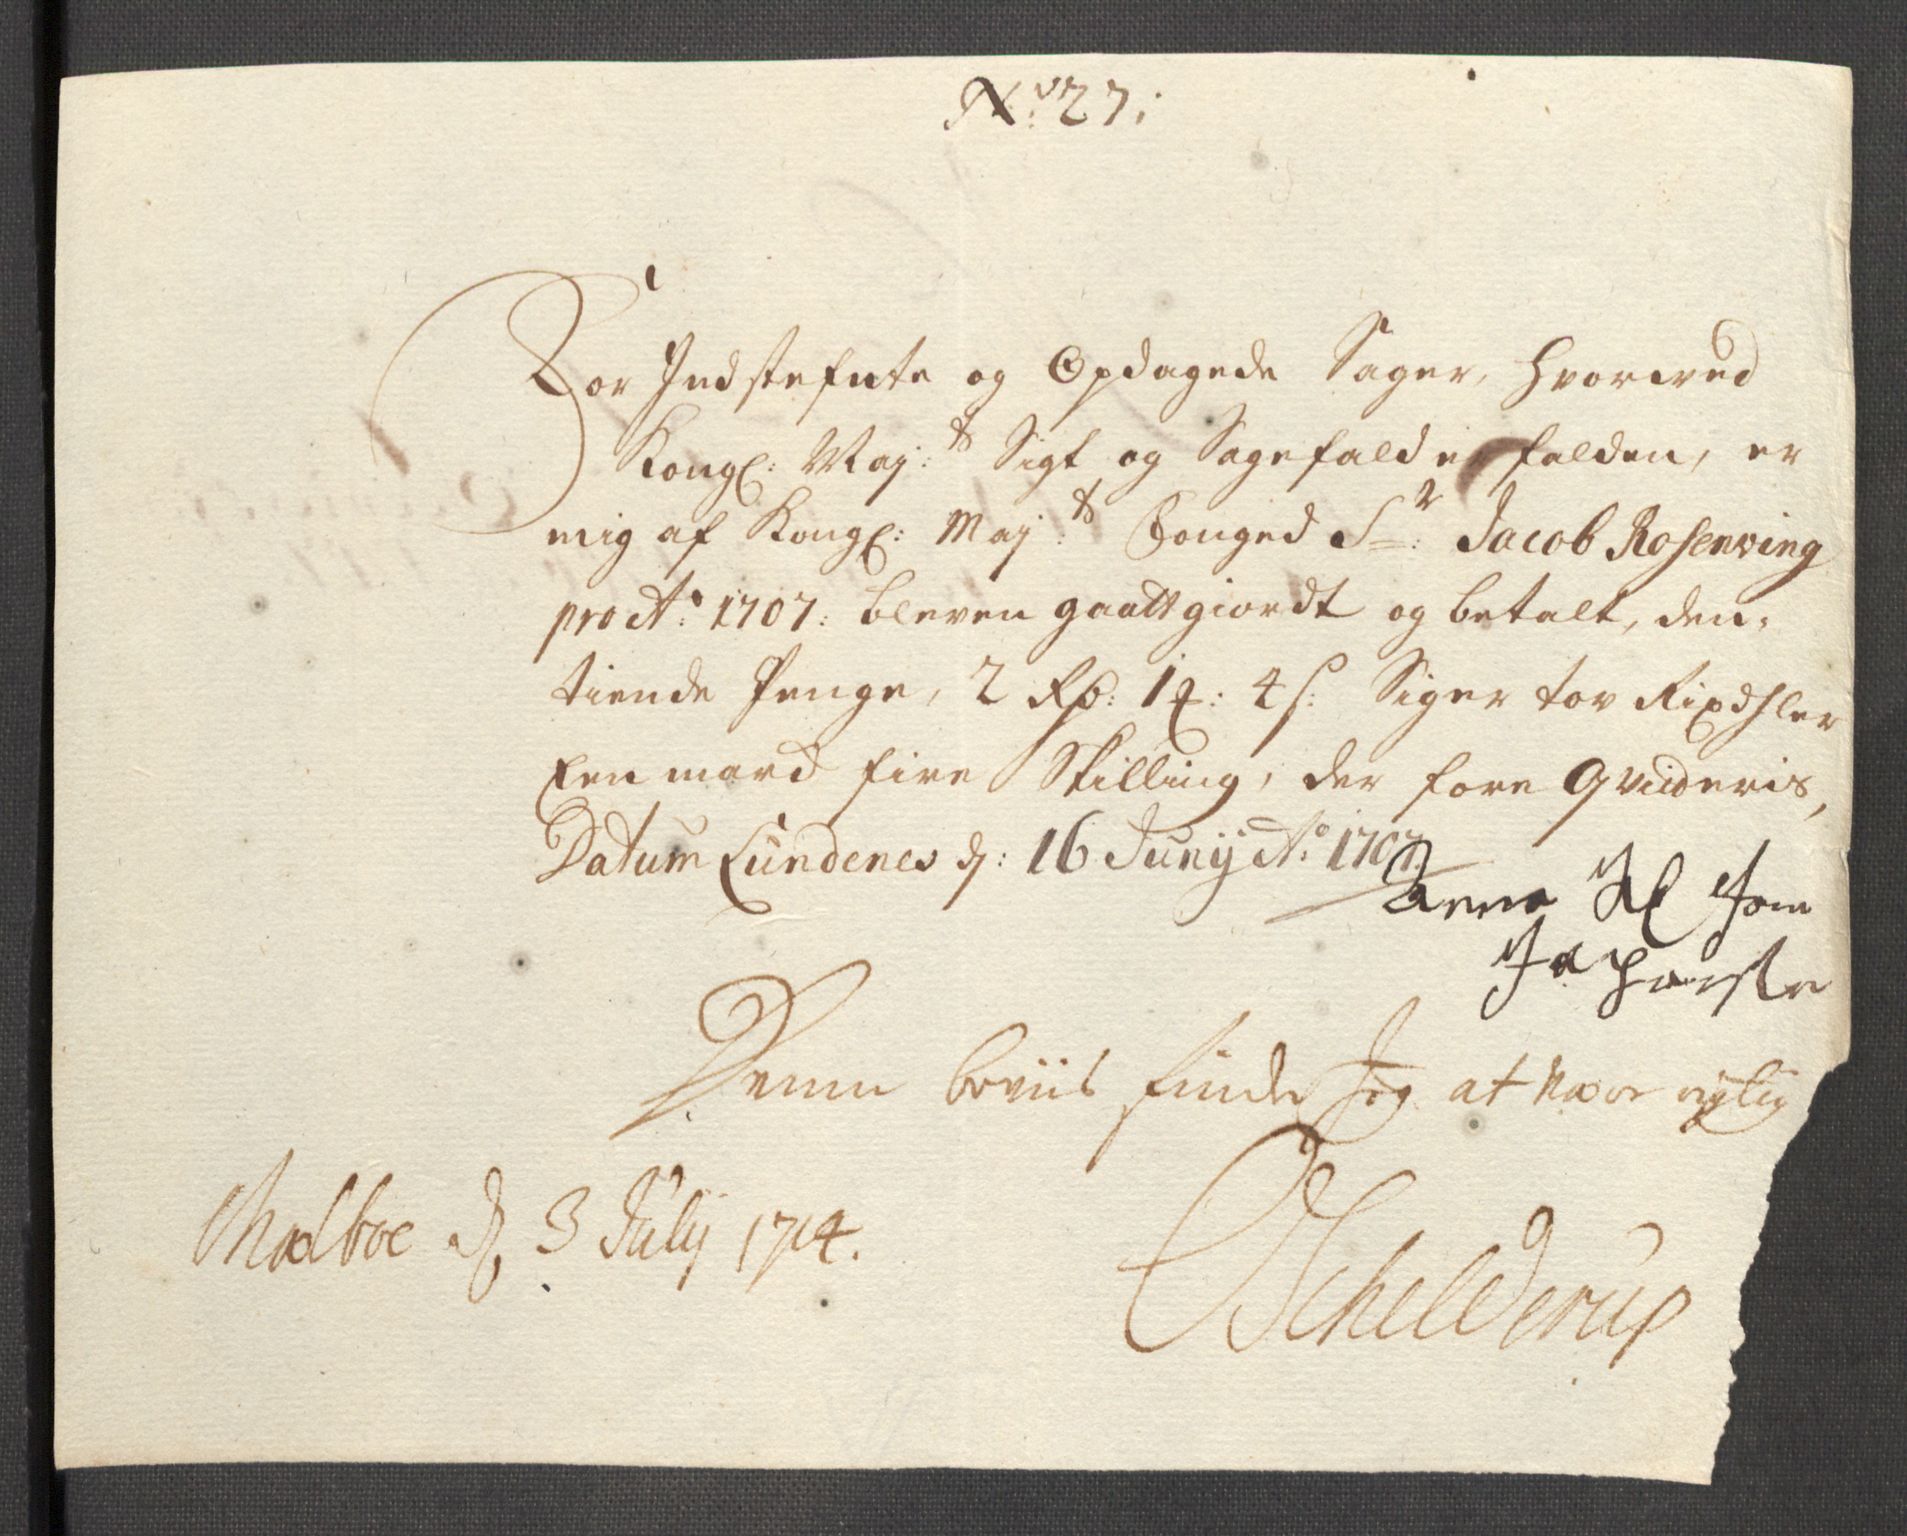 No: 27:
For Indstefnte og Opdagede Sager, hvorved
Kongl: Maj:ts Sigt og Sagefald er falden, er
mig af Kongl: Maj:ts Fouged Sr: Jacob Rosenving
pro Ao: 1707: bleven gaattgiordt og betalt, den
tiende Penge, 2 Rd: 1 mk: 4 s: Siger tov Rixdhler
Een march fire Skilling, der fore Qviideris,
Datum Lundenes d: 16 Junij Ao: 1707.
Anna
Denne beviis finder Jeg at være rigtig
Madboe d 3 Julij 1714.
Schelderup